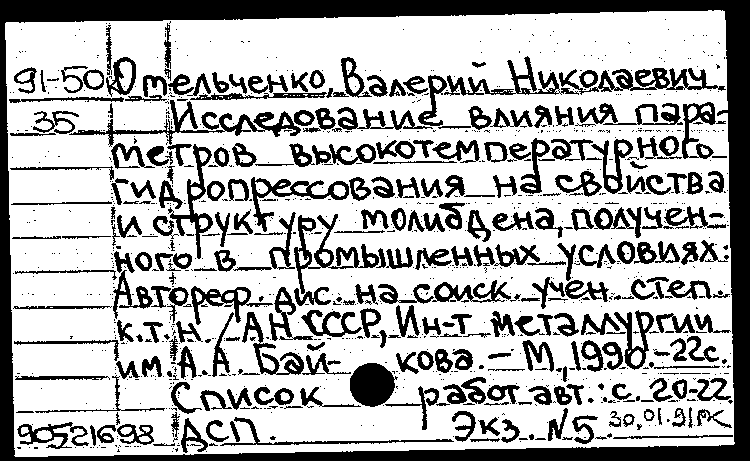 91-50 Отельченко, Валерий Николаевич
35 Исследование влияния пара-
метров высокотемпературного
гидропрессования на свойства
и структуру молибдена, получен-
ного в промышленных условиях:
Автореф. дис. на соиск. учен. степ.
к.т.н. / АН СССР, Ин-т металлургии
им. А.А. Бай- кова. – М., 1990. – 22 с.
Список работ авт.: с. 20-22
90521698 ДСП. Экз. N5. 30.01.91